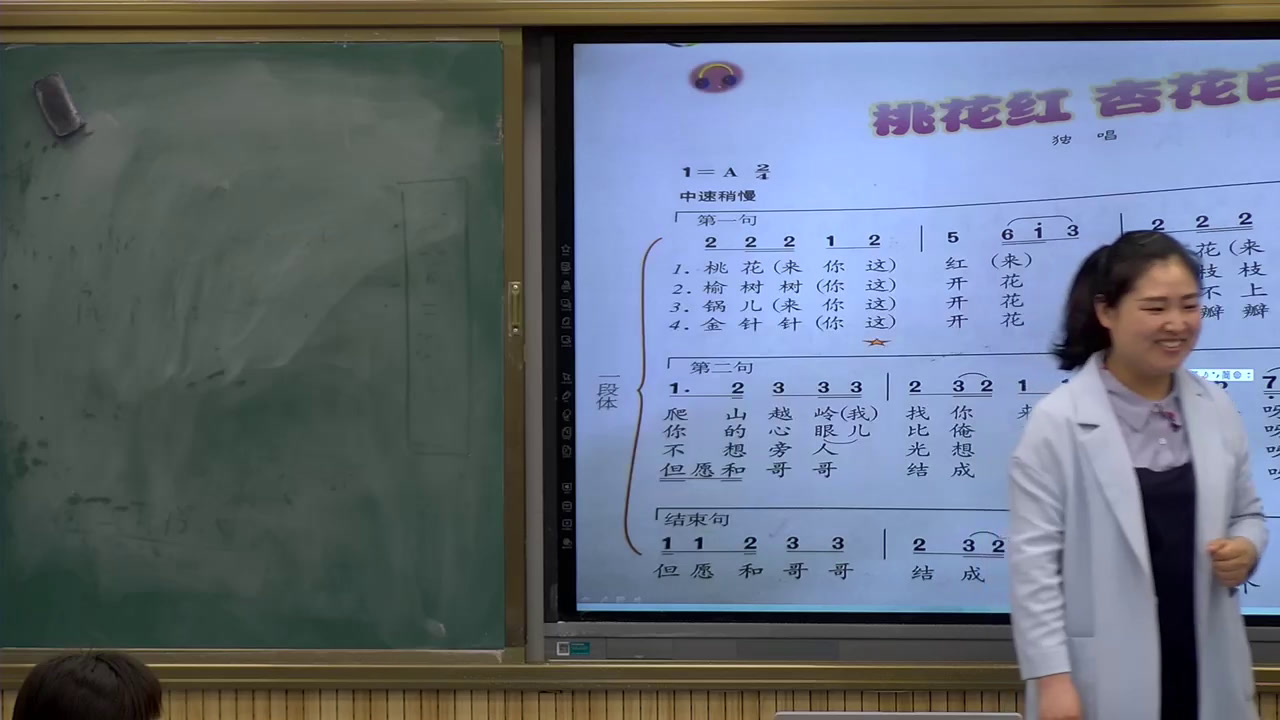 桃花红 杏花白
独 唱
1= A 2/4
中速稍慢
第一句
2 2 2 1 2 | 5 6 i 3 | 2 2 2
1. 桃 花 (来 你 这) 红 (来) 花 (来
2. 榆 树 树 (你 这) 开 花 枝 枝
3. 锅 儿 (来 你 这) 开 花 不 上
4. 金 针 针 (你 这) 开 花 瓣 瓣
一段体
第二句
1. 2 3 3 3 | 2 3 2 1 7
爬 山 越 岭(我) 找 你 来
你 的 心 眼 儿 比 俺
不 想 旁 人 光 想
但 愿 和 哥 哥 结 成
结束句
1 1 2 3 3 | 2 3 2
但 愿 和 哥 哥 结 成